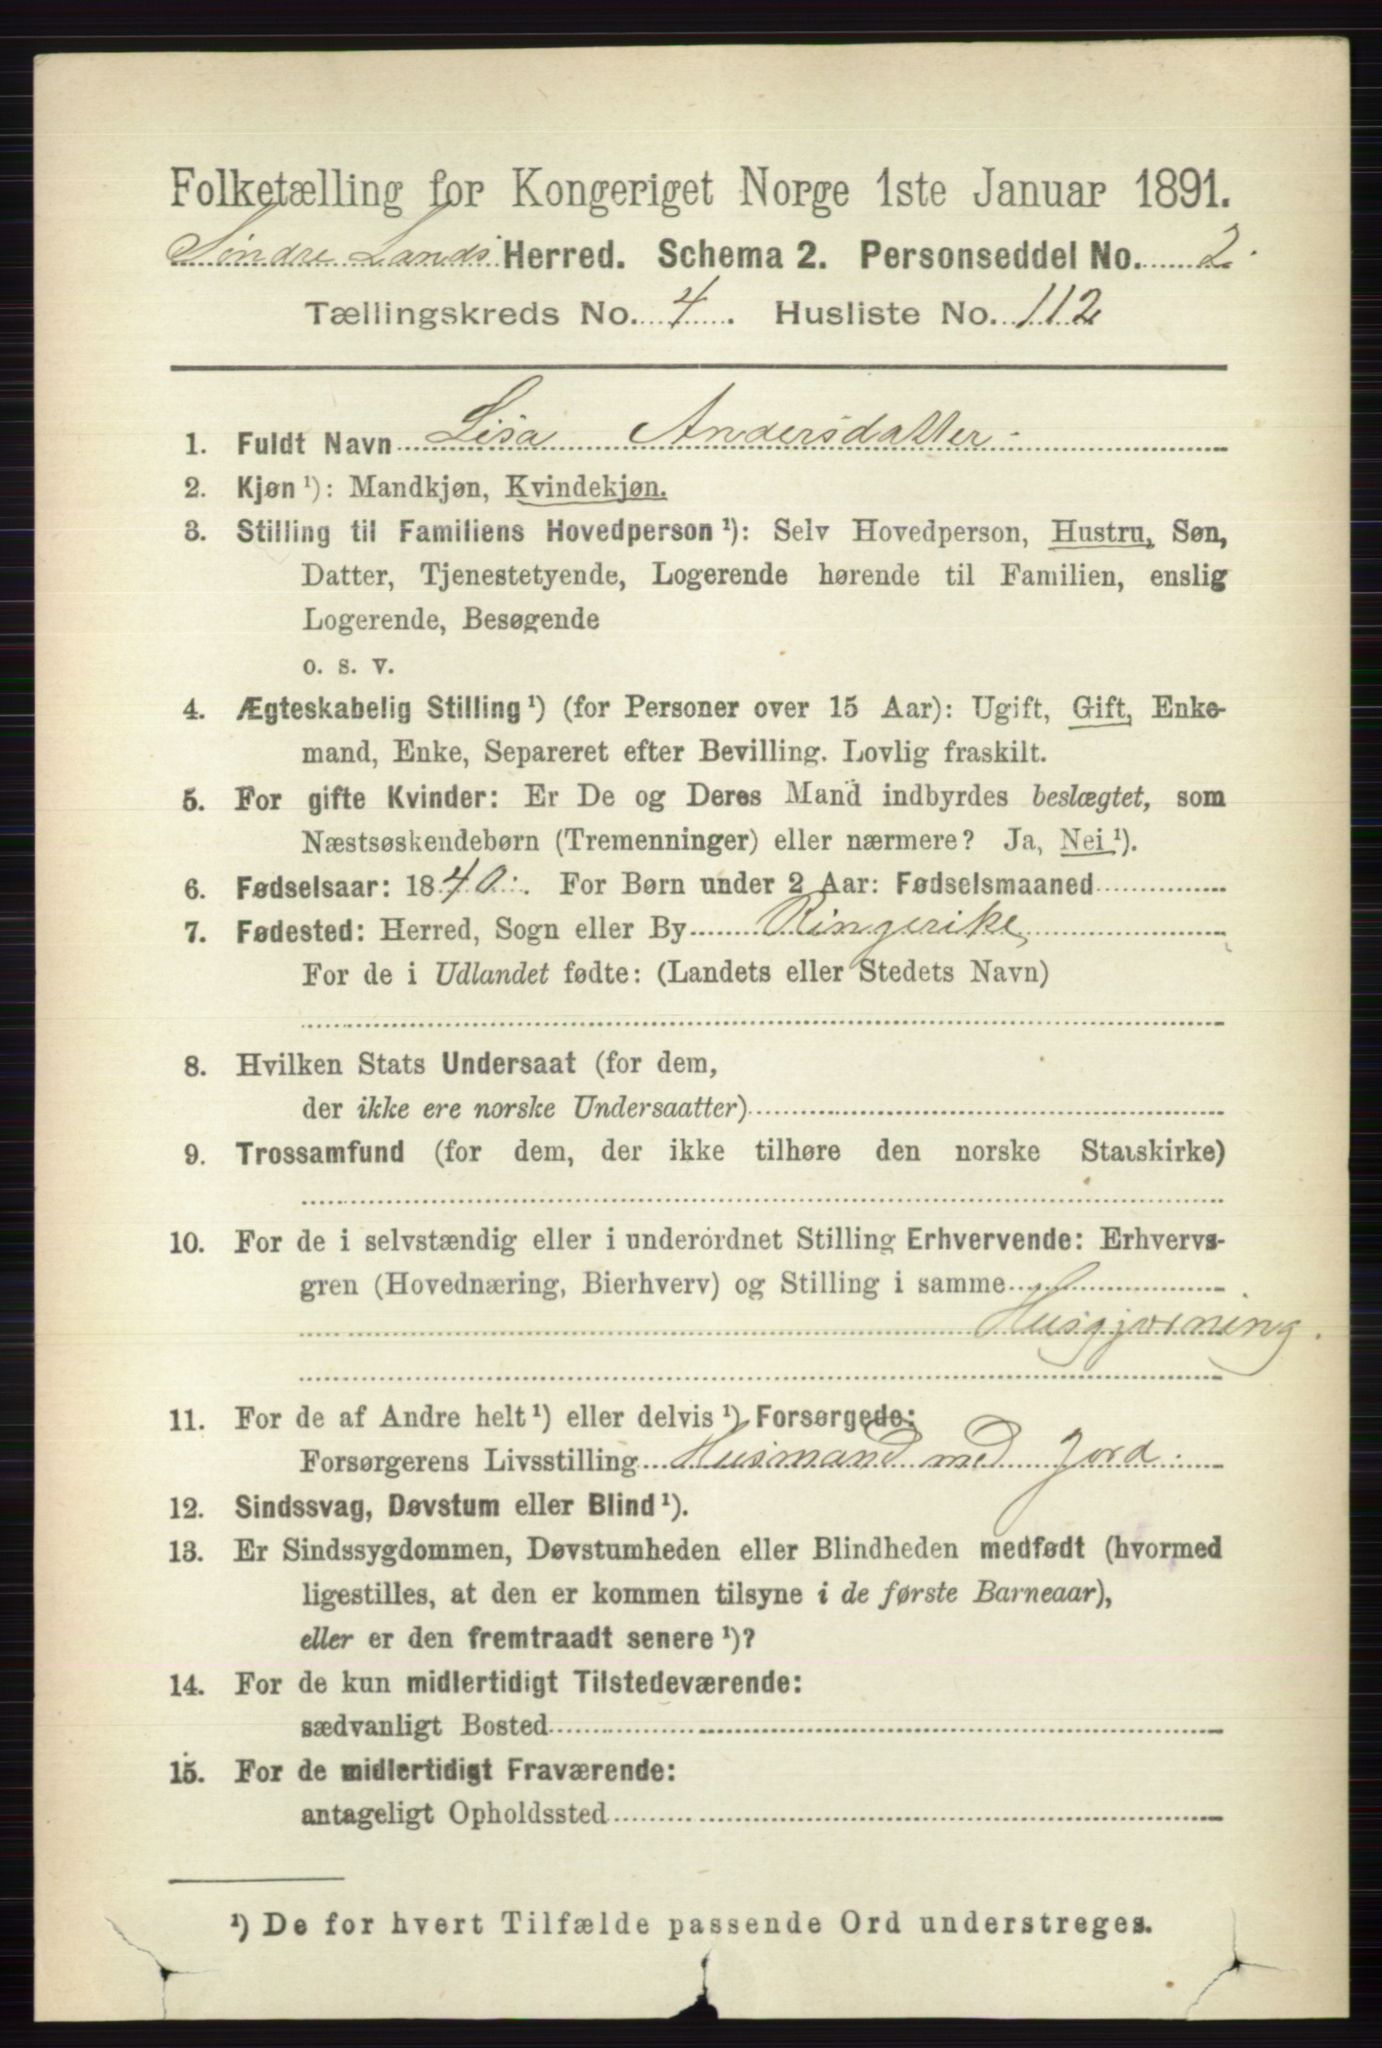 Folketælling for Kongeriget Norge 1ste Januar 1891.
Søndre Lands Herred. Schema 2. Personseddel No. 2.
Tællingskreds No. 4. Husliste No. 112
1. Fuldt Navn Lisa Andersdatter
2. Kjøn ¹): Mandkjøn, Kvindekjøn.
3. Stilling til Familiens Hovedperson ¹): Selv Hovedperson, Hustru, Søn,
Datter, Tjenestetyende, Logerende hørende til Familien, enslig
Logerende, Besøgende
o. s. v.
4. Ægteskabelig Stilling ¹) (for Personer over 15 Aar): Ugift, Gift, Enke-
mand, Enke, Separeret efter Bevilling. Lovlig fraskilt.
5. For gifte Kvinder: Er De og Deres Mand indbyrdes beslægtet, som
Næstsøskendebørn (Tremenninger) eller nærmere? Ja, Nei ¹).
6. Fødselsaar: 1840. For Børn under 2 Aar: Fødselsmaaned
7. Fødested: Herred, Sogn eller By Ringerike
For de i Udlandet fødte: (Landets eller Stedets Navn)
8. Hvilken Stats Undersaat (for dem,
der ikke ere norske Undersaatter)
9. Trossamfund (for dem, der ikke tilhøre den norske Statskirke)
10. For de i selvstændig eller i underordnet Stilling Erhvervende: Erhvervs-
gren (Hovednæring, Bierhverv) og Stilling i samme
Husgjerning.
11. For de af Andre helt ¹) eller delvis ¹) Forsørgede:
Forsørgerens Livsstilling Husmand med Jord.
12. Sindssvag, Døvstum eller Blind ¹).
13. Er Sindssygdommen, Døvstumheden eller Blindheden medfødt (hvormed
ligestilles, at den er kommen tilsyne i de første Barneaar),
eller er den fremtraadt senere ¹)?
14. For de kun midlertidigt Tilstedeværende:
sædvanligt Bosted
15. For de midlertidigt Fraværende:
antageligt Opholdssted
¹) De for hvert Tilfælde passende Ord understreges.